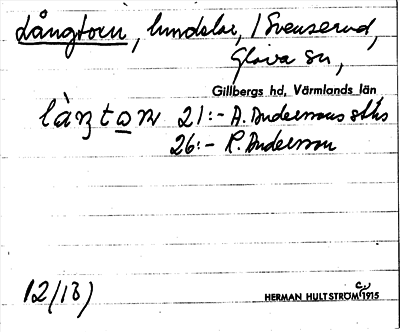 Långtorn, lundelar, i Svenserud,
Glava sn,
Gillbergs hd, Värmlands län
làŋtɒn 21:- A. Anderssons sths
26:- R. Andersson
12/13)
HERMAN HULTSTRÖM 1915